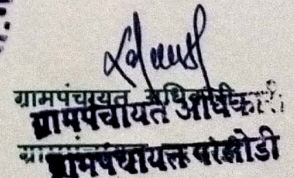 ग्रामपंचायत अधिकारी
ग्रामपंचायत अधिकारी
ग्रामपंचायत परसोडी